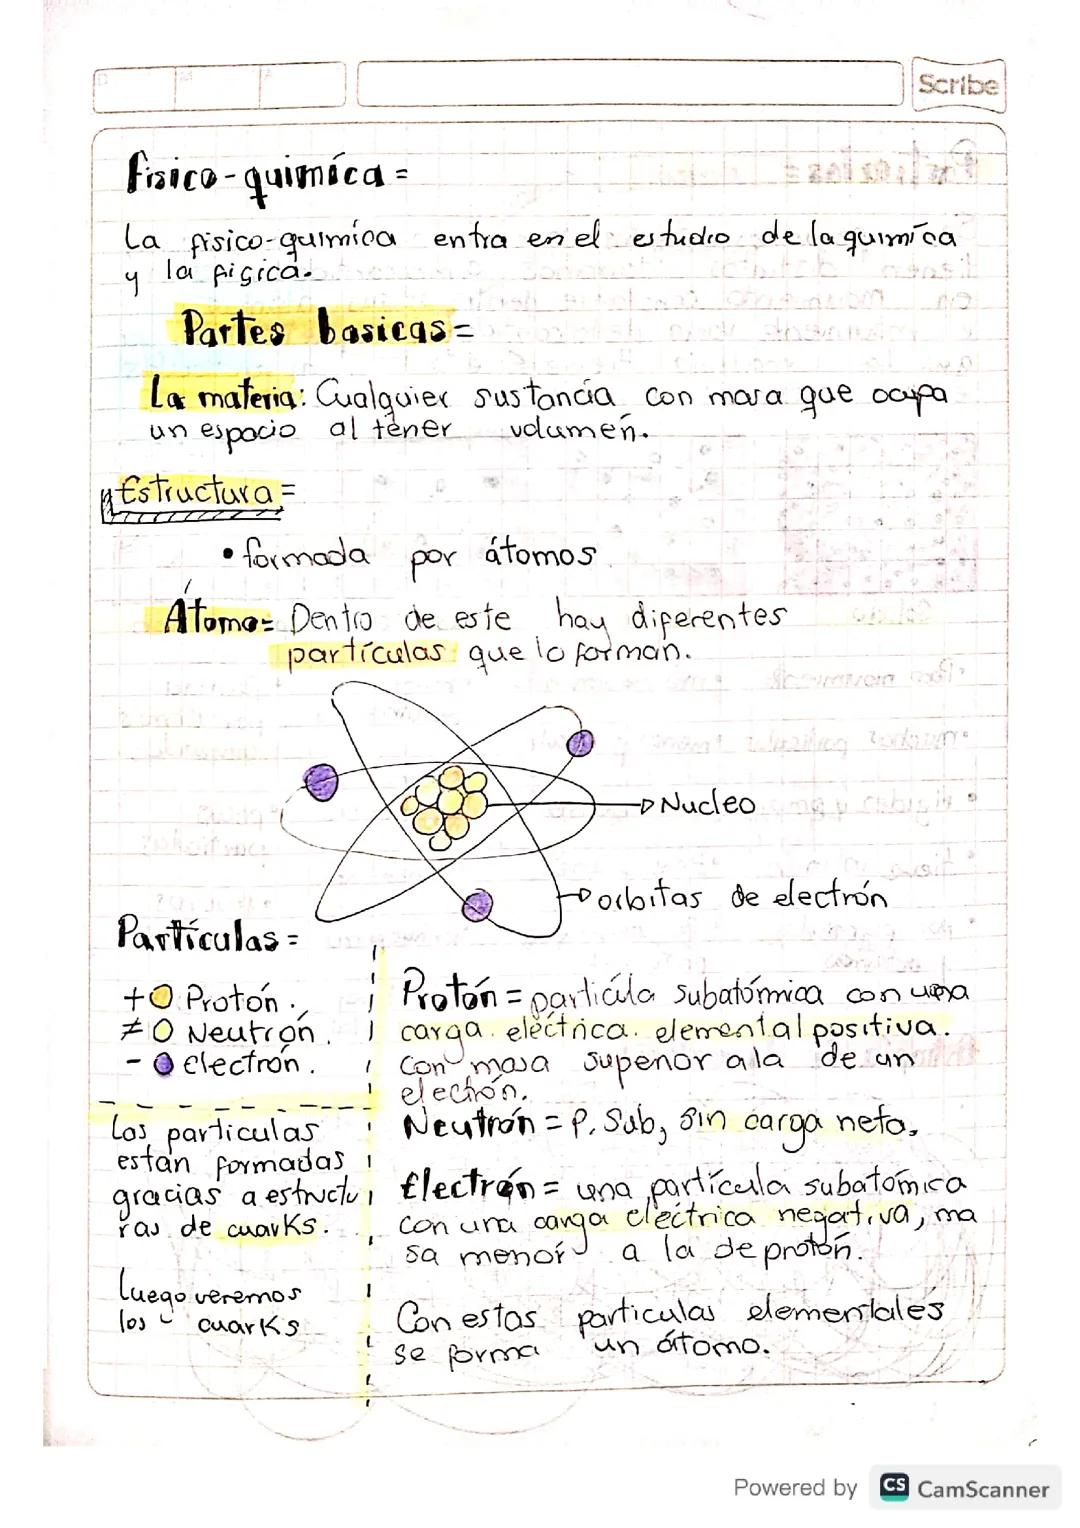 Scribe
Fisico-quimíca=
La fisico-quimíca entra en el estudio de la quimíca
y la físíca.
Partes basicas=
La materia: Cualquier sustancía con masa que ocupa
un espacio al tener volumen.
Estructura=
• formada por átomos
Átomo= Dentro de este hay diferentes
partículas que lo forman.
Nucleo
orbitas de electrón
Partículas=
+ Protón.
≠ Neutrón.
- electrón.
Las particulas
están formadas
gracias a estructu
ras de cuarks.
Luego veremos
los cuarks
Protón= partícula subatómica con una
carga electrica elemental positiva.
Con masa superior a la de un
electrón.
Neutrón= P. Sub, sin carga neta.
Electrón= una partícula subatómica
con una carga eléctrica negativa, ma
sa menor a la de protón.
Con estas particulas elementales
se forma un átomo.
Powered by CS CamScanner